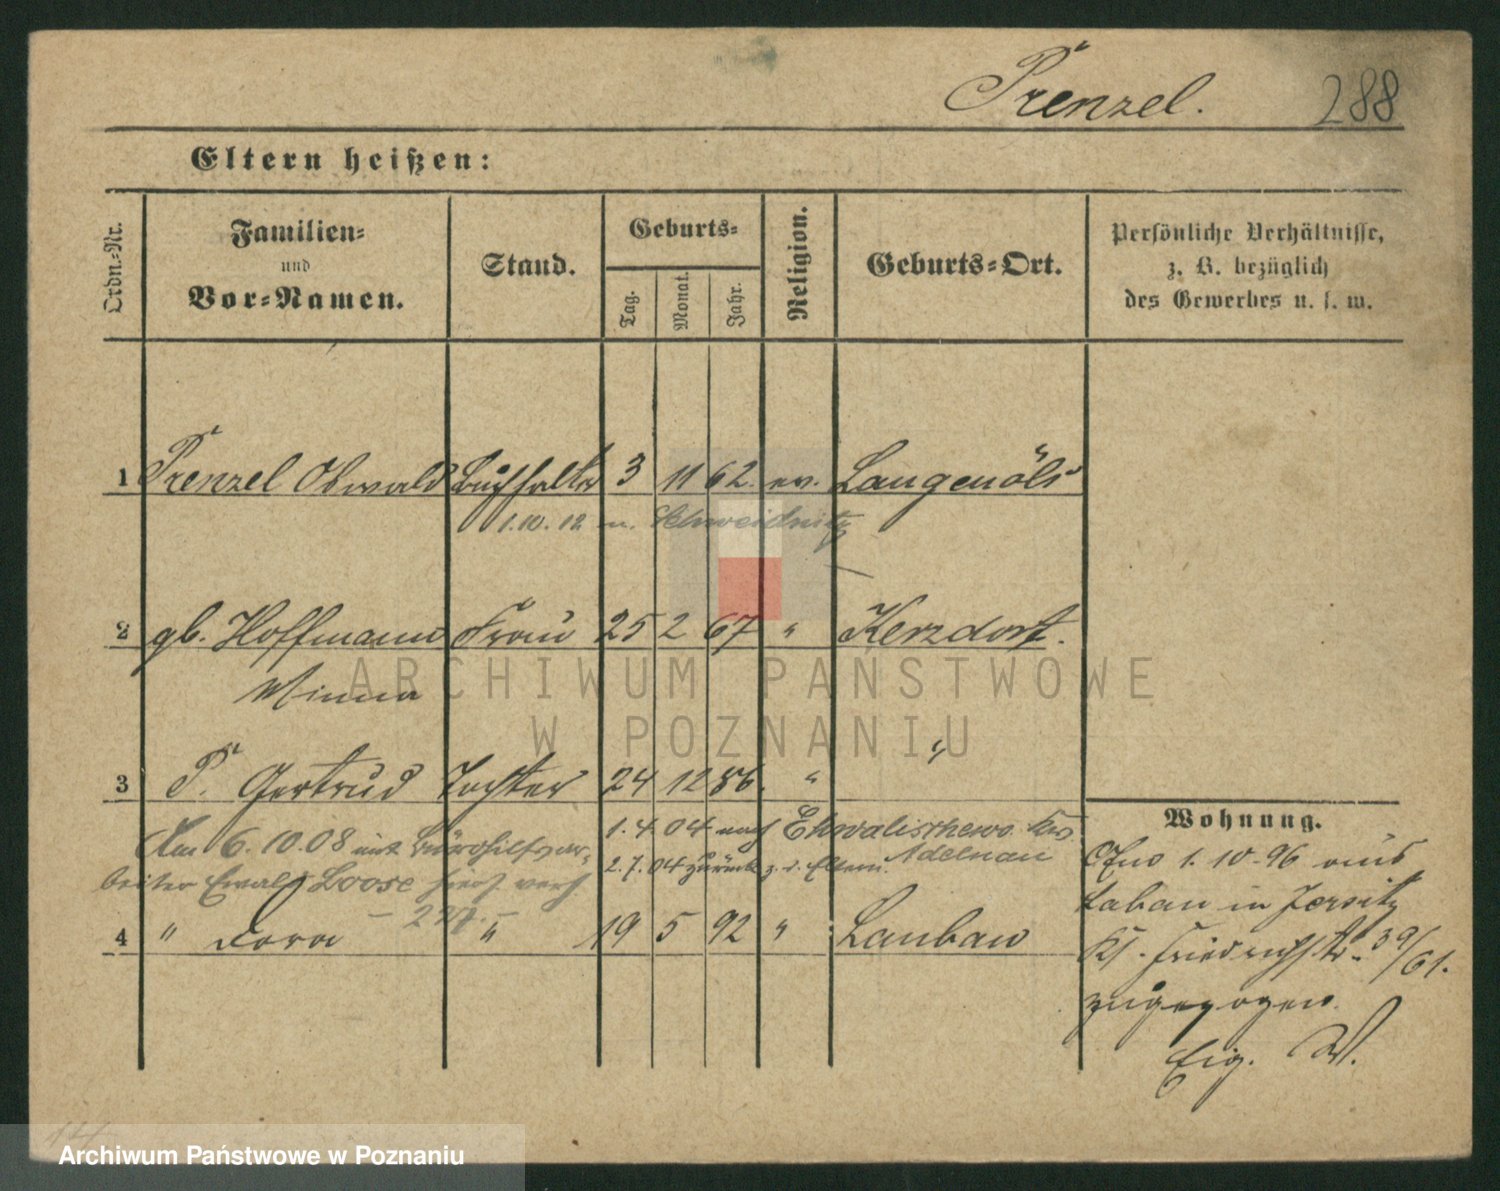 Prenzel. 288
Eltern heißen:
Ordn.-Nr.
Familien-
und
Vor-Namen.
Stand.
Geburts-
Tag.
Monat.
Jahr.
Religion.
Geburts-Ort.
Persönliche Verhältnisse,
z. B. bezüglich
des Gewerbes u. s. w.
1 Prenzel Oswald Buchhalter 3 11 62. ev. Langenöls
1.10.12 n. Schweidnitz
2 gb. Hoffmann Frau 25 2 67 " Kerzdorf.
Minna
ARCHIWUM PAŃSTWOWE
W POZNANIU
3 P. Gertrud Tochter 24 12 86. " "
1.4.04 nach Krs.
Adelnau
2.7.04 zurück z. d. Eltern.
Am 6.10.08 mit Bürohilfsar-
beiter Ewald Loose hier verh.
4 " Dora " 19 5 92 " Lauban
Wohnung.
1.10.96 aus
Lauban in Jersitz
Kl. Friedrichstr. 39/61.
zugezogen.
Eig. W.
Archiwum Państwowe w Poznaniu